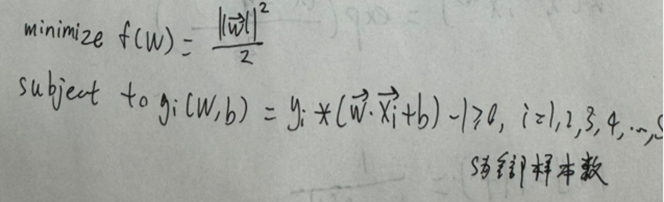 minimize f(w) = ||w⃗||² / 2
subject to gᵢ(w,b) = yᵢ * (w⃗·x⃗ᵢ + b) - 1 ≥ 0, i=1,2,3,4,...,S
S为全部样本数